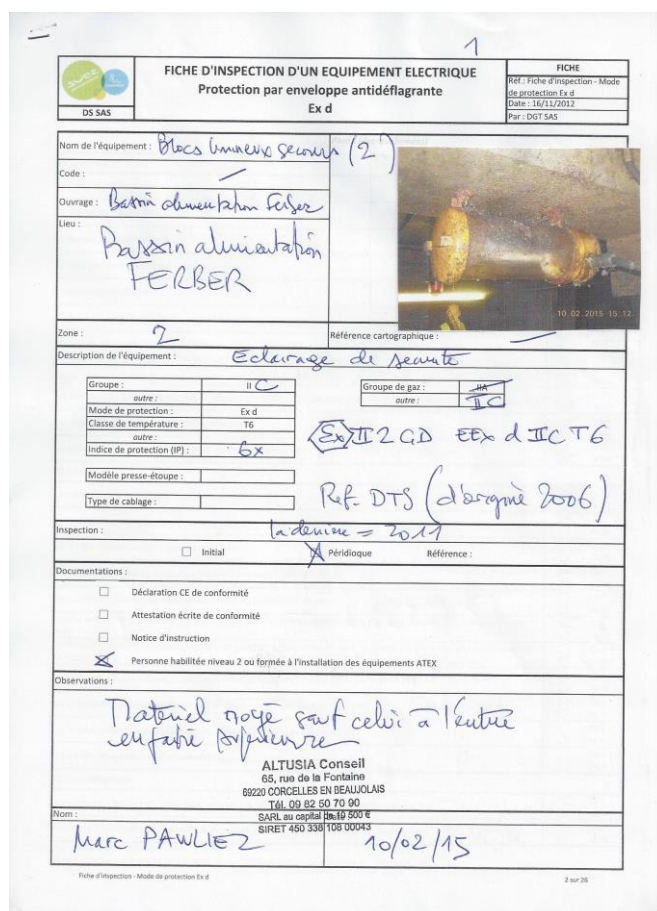 1
suez
DS SAS
FICHE D'INSPECTION D'UN EQUIPEMENT ELECTRIQUE
Protection par enveloppe antidéflagrante
Ex d
FICHE
Réf.: Fiche d'inspection - Mode
de protection Ex d
Date : 16/11/2012
Par : DGT SAS
Nom de l'équipement : Blocs lumineux secours (2)
Code : /
Ouvrage : Bassin alimentation Ferber
Lieu :
Bassin alimentation
FERBER
10.02.2015 15:12
Zone : 2
Référence cartographique : —
Description de l'équipement : Eclairage de securite
Groupe : II C
autre :
Mode de protection : Ex d
Classe de température : T6
autre :
Indice de protection (IP) : 6x
Groupe de gaz : IIA
autre : IIC
Ex II 2 GD EEx d IIC T6
Modèle presse-étoupe :
Type de cablage :
Ref. DTS (d'origine 2006)
Inspection : la derniere = 2011
Initial
Péridioque
Référence :
Documentations :
Déclaration CE de conformité
Attestation écrite de conformité
Notice d'instruction
Personne habilitée niveau 2 ou formée à l'installation des équipements ATEX
Observations :
Materiel noyé sauf celui à l'entrée
en partie
ALTUSIA Conseil
65, rue de la Fontaine
69220 CORCELLES EN BEAUJOLAIS
Tél. 09 82 50 70 90
SARL au capital de 19 500 €
SIRET 450 338 108 00043
Nom :
Marc PAWLIEZ
10/02/15
Fiche d'inspection - Mode de protection Ex d
2 sur 26